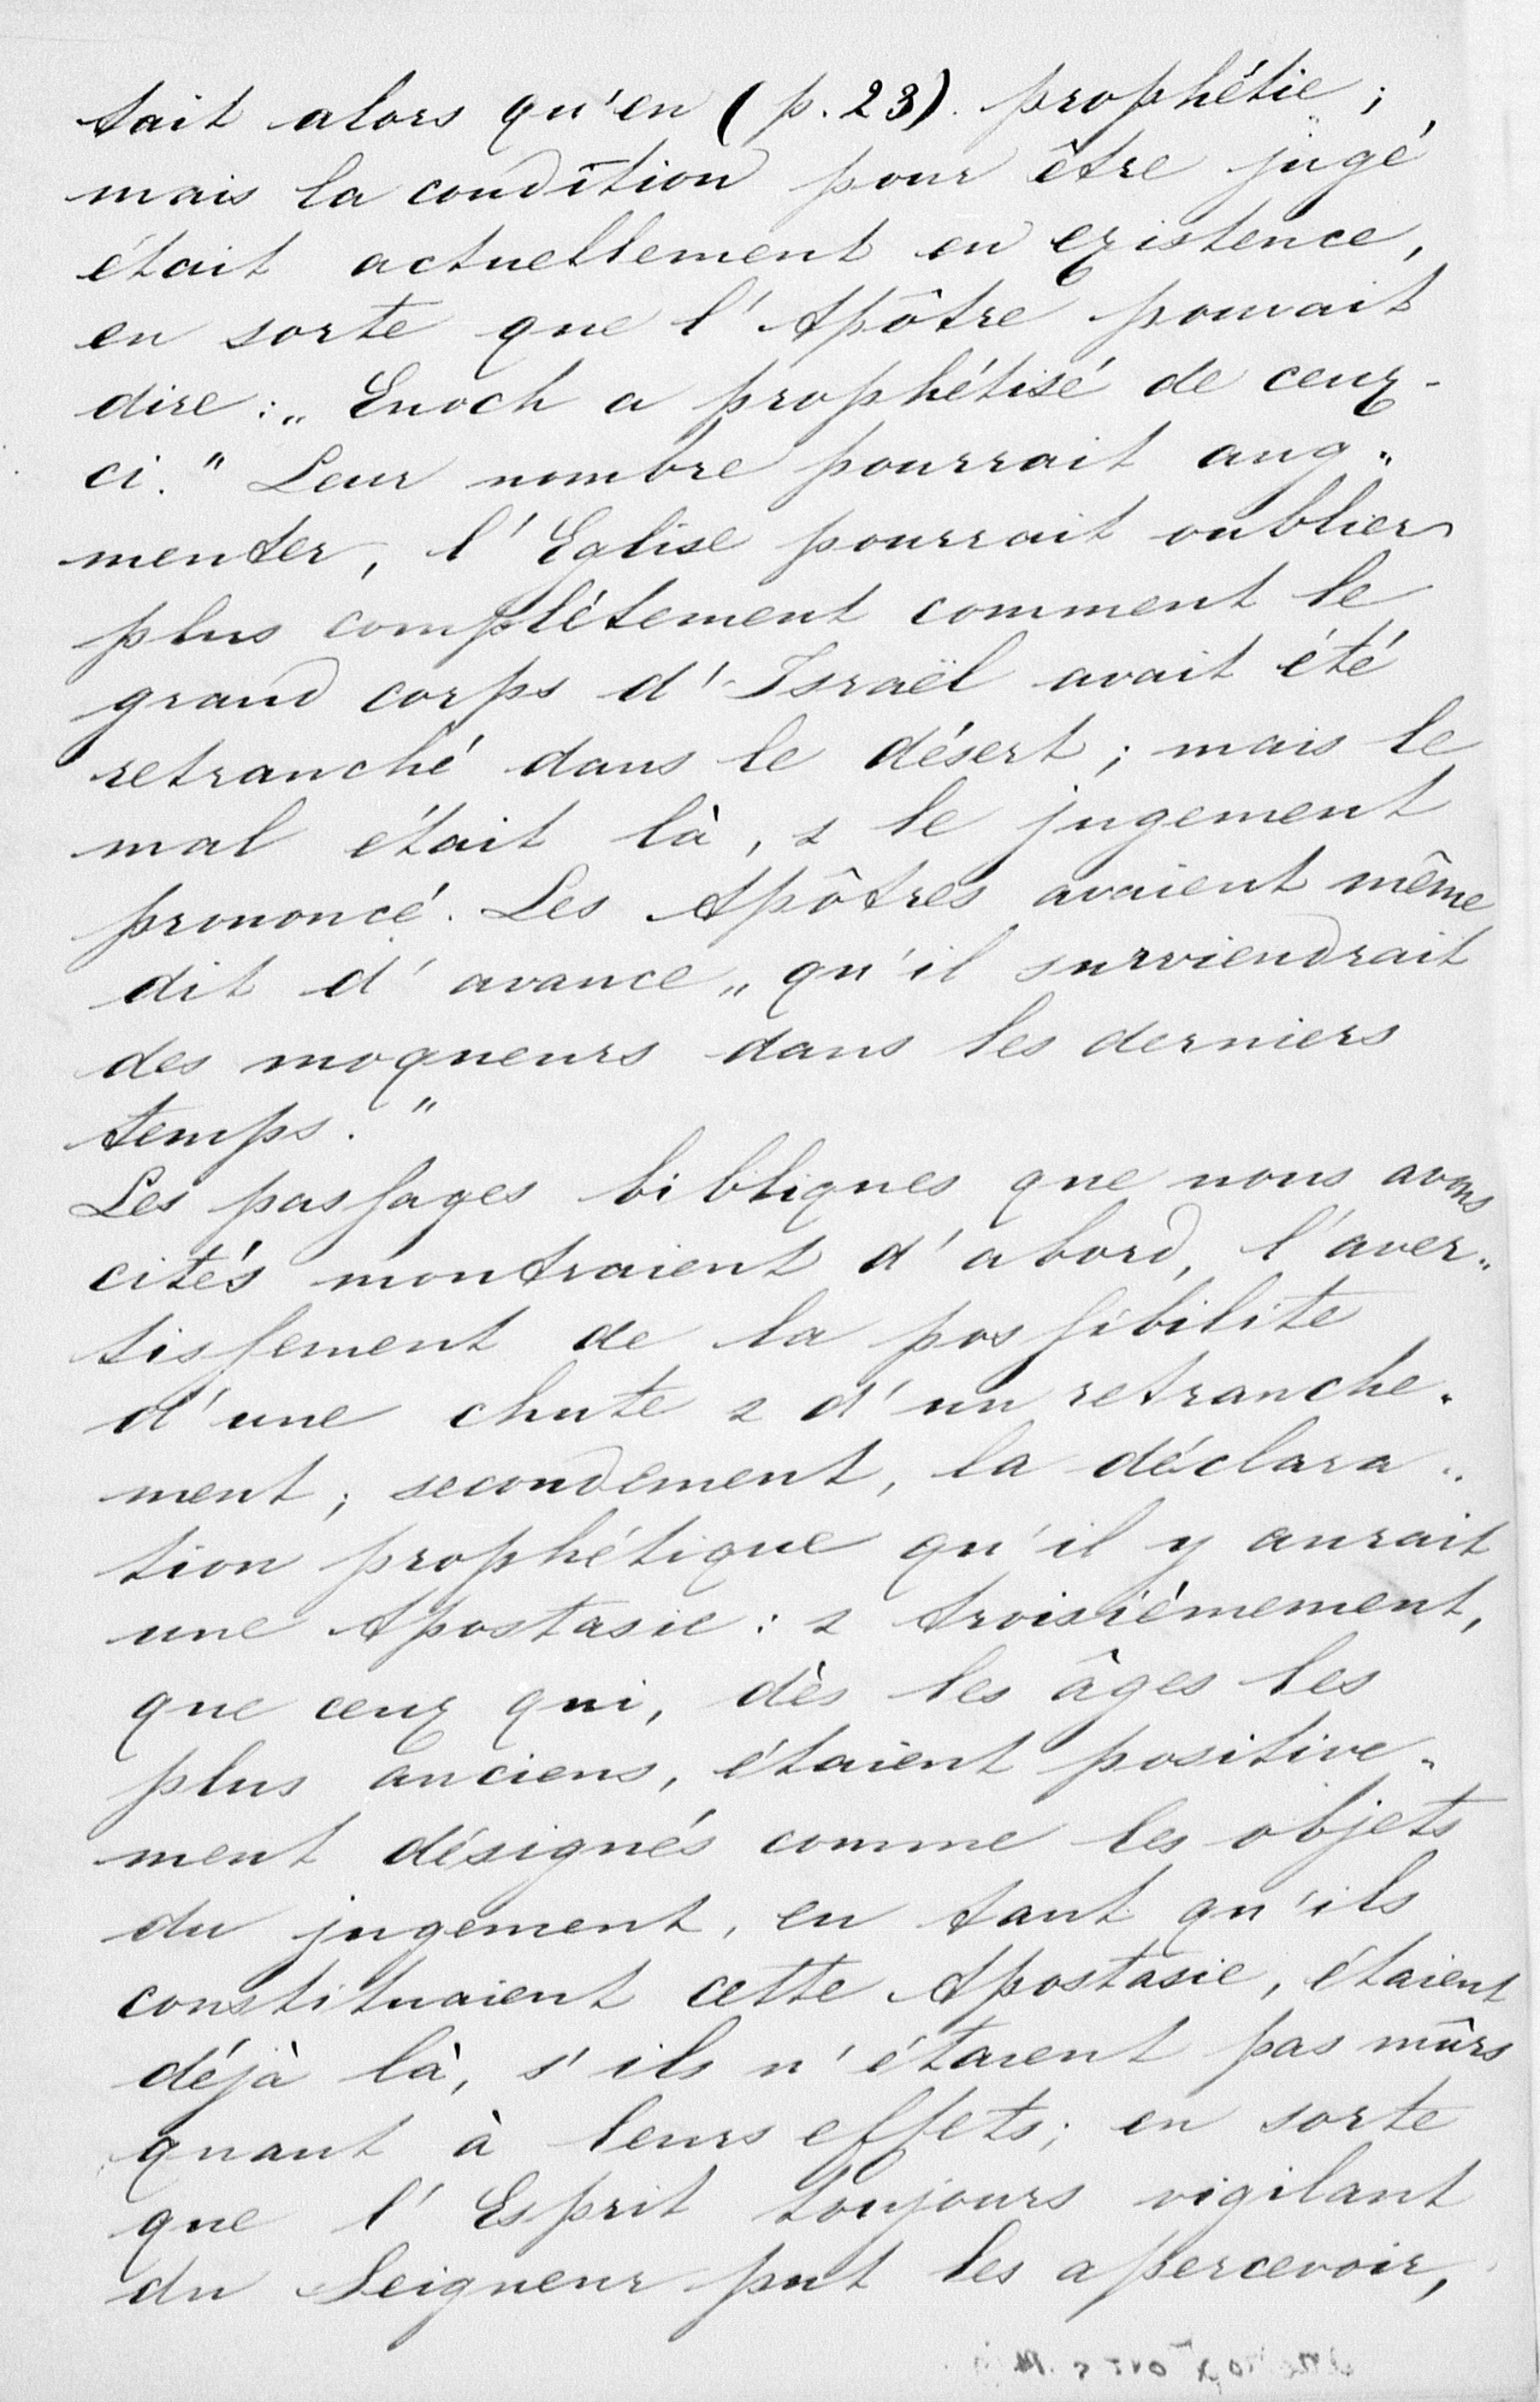 tait alors qu'en (p. 23). prophétie ;
mais la condition pour être jugé
était actuellement en existence,
en sorte que l'Apôtre pouvait
dire : „ Enoch a prophétisé de ceux-
ci. " Leur nombre pourrait aug„
menter, l'Eglise pourrait oublier
plus complètement comment le
grand corps d'Israël avait été
retranché dans le désert ; mais le
mal était là, & le jugement
prononcé. Les Apôtres avaient même
dit d'avance „ qu'il surviendrait
des moqueurs dans les derniers
temps. "
Les passages bibliques que nous avons
cités montraient d'abord, l'aver„
tissement de la possibilite
d'une chute & d'un retranche„
ment ; secondement, la déclara„
tion prophétique qu'il y aurait
une Apostasie : & troisièmement,
que ceux qui, dès les âges les
plus anciens, étaient positive„
ment désignés comme les objets
du jugement, en tant qu'ils
constituaient cette Apostasie, étaient
déjà là, s'ils n'étaient pas mûrs
quant à leurs effets ; en sorte
que l'Esprit toujours vigilant
du Seigneur put les apercevoir,